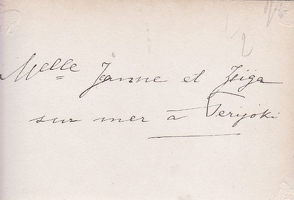 Melle Jeanne et Zeïga
sur mer à Terijoki